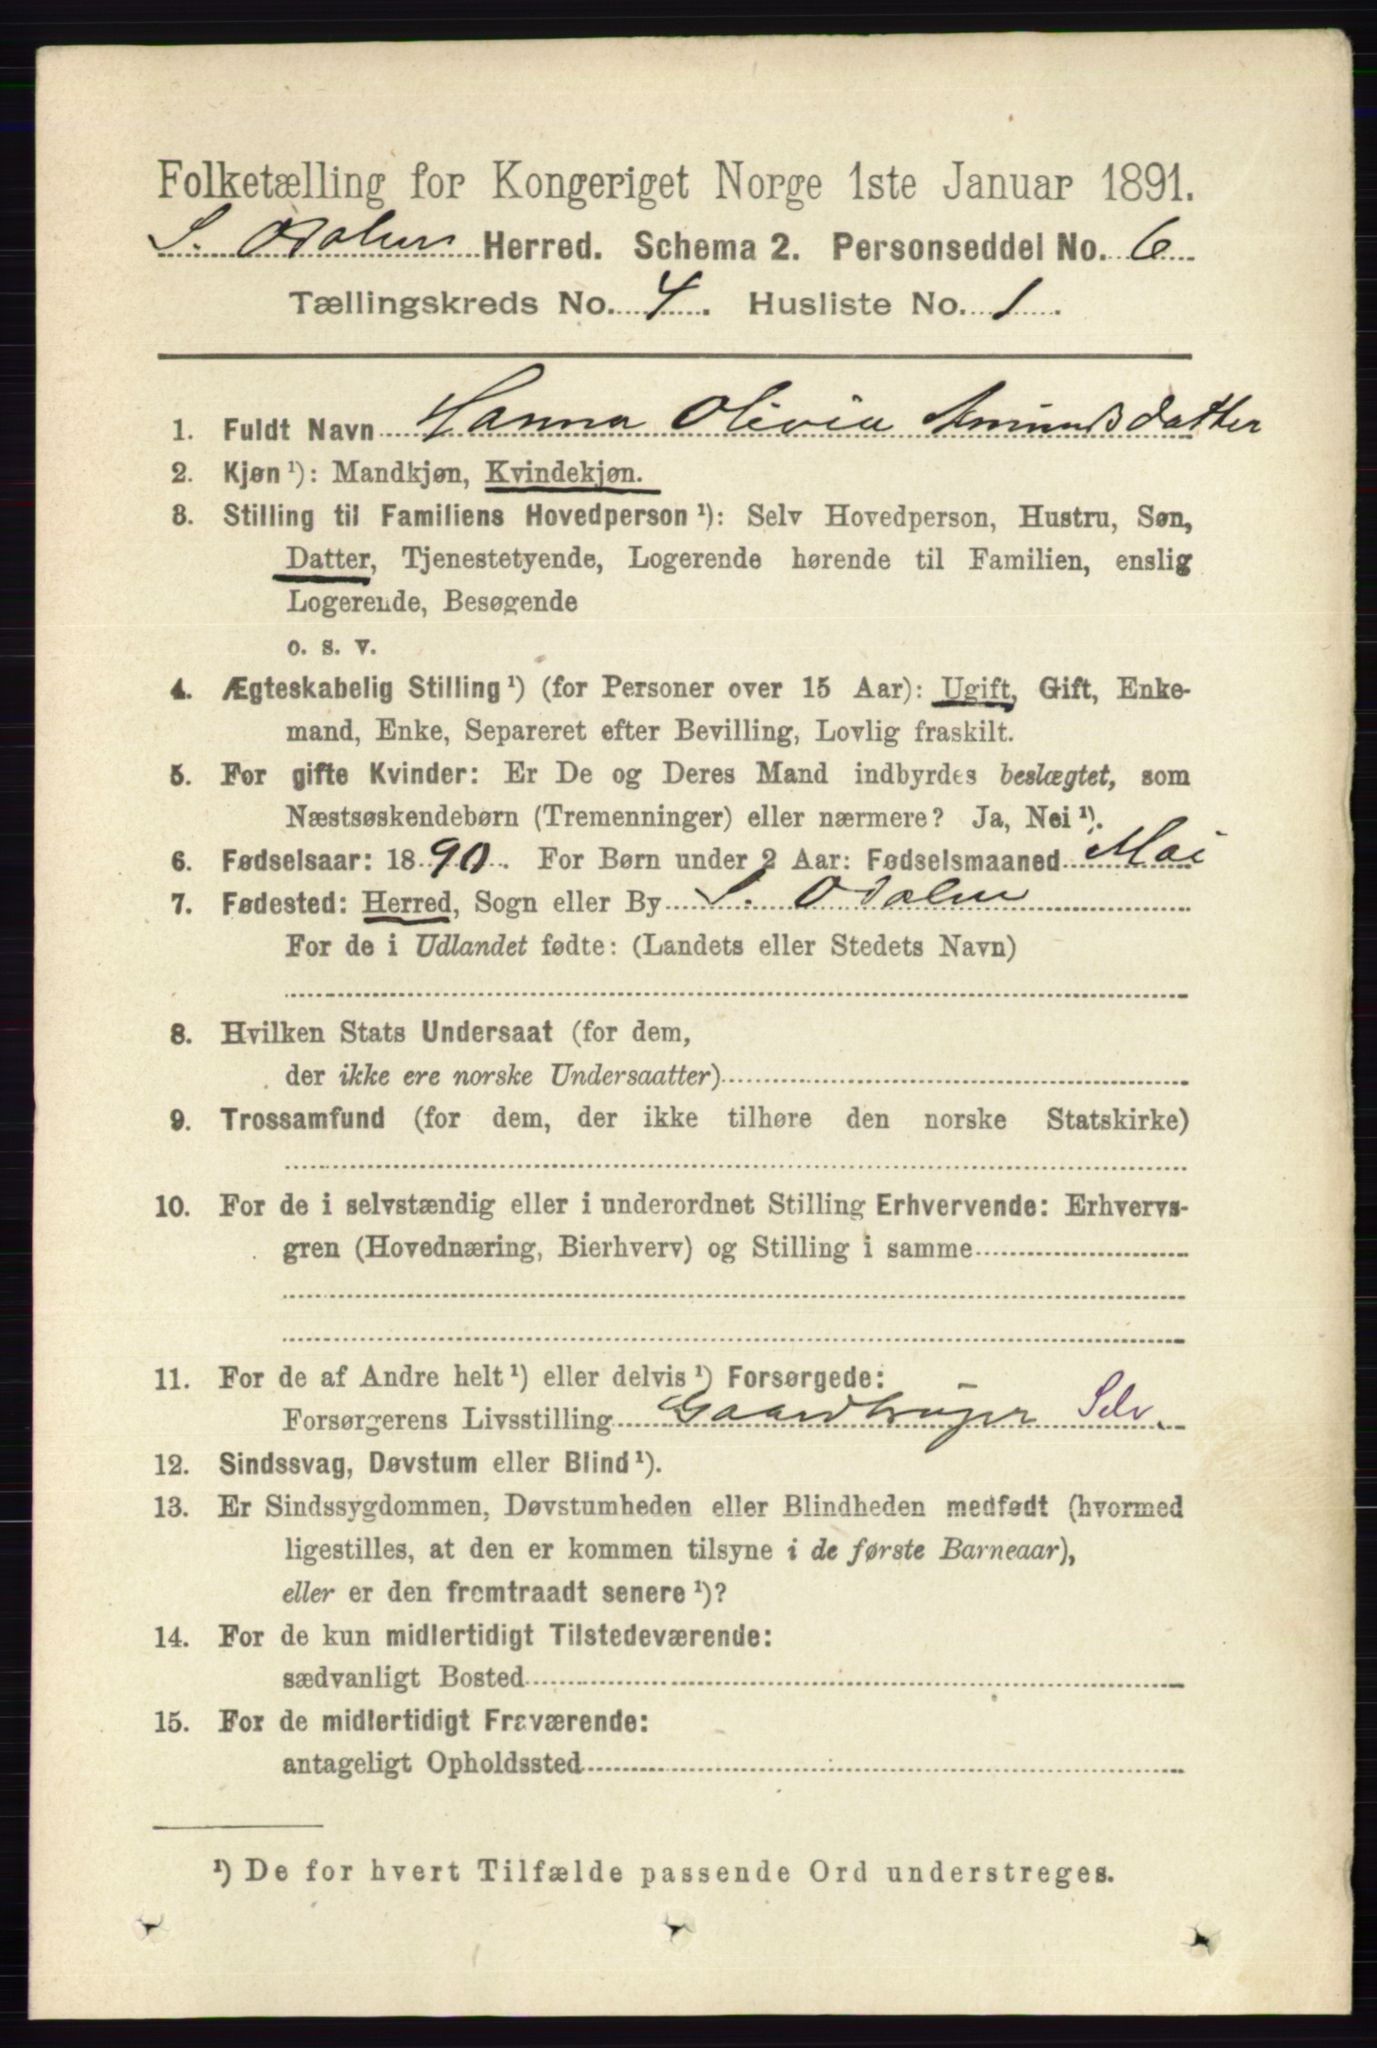 Folketælling for Kongeriget Norge 1ste Januar 1891.
S. Odalen Herred. Schema 2. Personseddel No. 6
Tællingskreds No. 4. Husliste No. 1.
1. Fuldt Navn Hanna Olivia Amundsdatter
2. Kjøn ¹): Mandkjøn, Kvindekjøn.
3. Stilling til Familiens Hovedperson ¹): Selv Hovedperson, Hustru, Søn,
Datter, Tjenestetyende, Logerende hørende til Familien, enslig
Logerende, Besøgende
o. s. v.
4. Ægteskabelig Stilling ¹) (for Personer over 15 Aar): Ugift, Gift, Enke-
mand, Enke, Separeret efter Bevilling, Lovlig fraskilt.
5. For gifte Kvinder: Er De og Deres Mand indbyrdes beslægtet, som
Næstsøskendebørn (Tremenninger) eller nærmere? Ja, Nei ¹).
6. Fødselsaar: 1890. For Børn under 2 Aar: Fødselsmaaned Mai
7. Fødested: Herred, Sogn eller By S. Odalen
For de i Udlandet fødte: (Landets eller Stedets Navn)
8. Hvilken Stats Undersaat (for dem,
der ikke ere norske Undersaatter)
9. Trossamfund (for dem, der ikke tilhøre den norske Statskirke)
10. For de i selvstændig eller i underordnet Stilling Erhvervende: Erhvervs-
gren (Hovednæring, Bierhverv) og Stilling i samme
11. For de af Andre helt ¹) eller delvis ¹) Forsørgede:
Forsørgerens Livsstilling Gaardbruger Selv.
12. Sindssvag, Døvstum eller Blind ¹).
13. Er Sindssygdommen, Døvstumheden eller Blindheden medfødt (hvormed
ligestilles, at den er kommen tilsyne i de første Barneaar),
eller er den fremtraadt senere ¹)?
14. For de kun midlertidigt Tilstedeværende:
sædvanligt Bosted
15. For de midlertidigt Fraværende:
antageligt Opholdssted
¹) De for hvert Tilfælde passende Ord understreges.